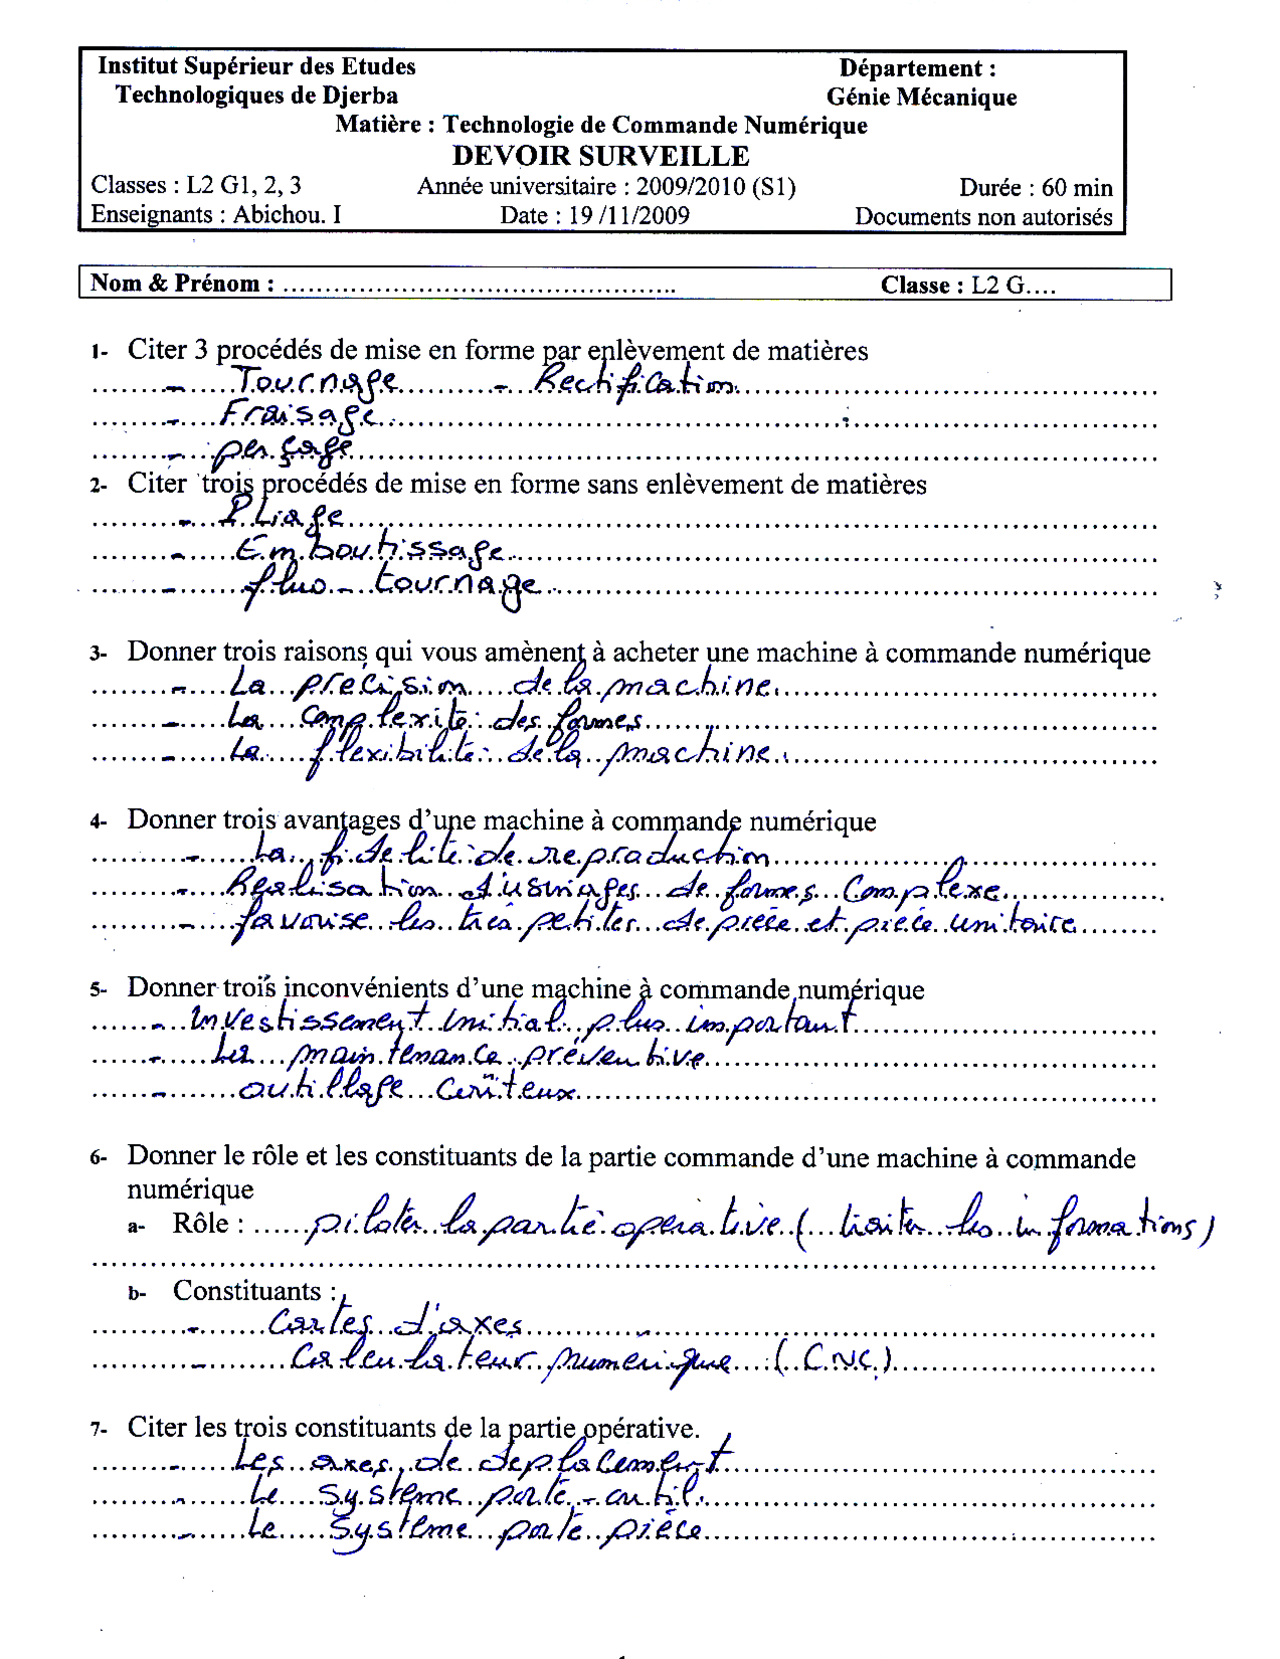 Institut Supérieur des Etudes Département :
Technologiques de Djerba Génie Mécanique
Matière : Technologie de Commande Numérique
DEVOIR SURVEILLE
Classes : L2 G1, 2, 3 Année universitaire : 2009/2010 (S1) Durée : 60 min
Enseignants : Abichou. I Date : 19 /11/2009 Documents non autorisés
Nom & Prénom : .................................................. Classe : L2 G....
1- Citer 3 procédés de mise en forme par enlèvement de matières
- Tournage - Rectification
- Fraisage
- perçage
2- Citer trois procédés de mise en forme sans enlèvement de matières
- Pliage
- Emboutissage
- fluo-tournage
3- Donner trois raisons qui vous amènent à acheter une machine à commande numérique
- La précision de la machine.
- La complexité des formes
- La flexibilité de la machine.
4- Donner trois avantages d'une machine à commande numérique
- La fidelité de reproduction
- Réalisation d'usinages de formes complexe
- favorise les très petites de pièce et pièce unitaire
5- Donner trois inconvénients d'une machine à commande numérique
- investissement initial plus important
- La maintenance préventive
- outillage coûteux
6- Donner le rôle et les constituants de la partie commande d'une machine à commande
numérique
a- Rôle : piloter la partie opérative ( traiter les informations)
b- Constituants :
- Cartes d'axes
- Calculateur numerique (C.N.C.)
7- Citer les trois constituants de la partie opérative.
- Les axes de deplacement
- Le système porte-outil.
- Le système porte pièce